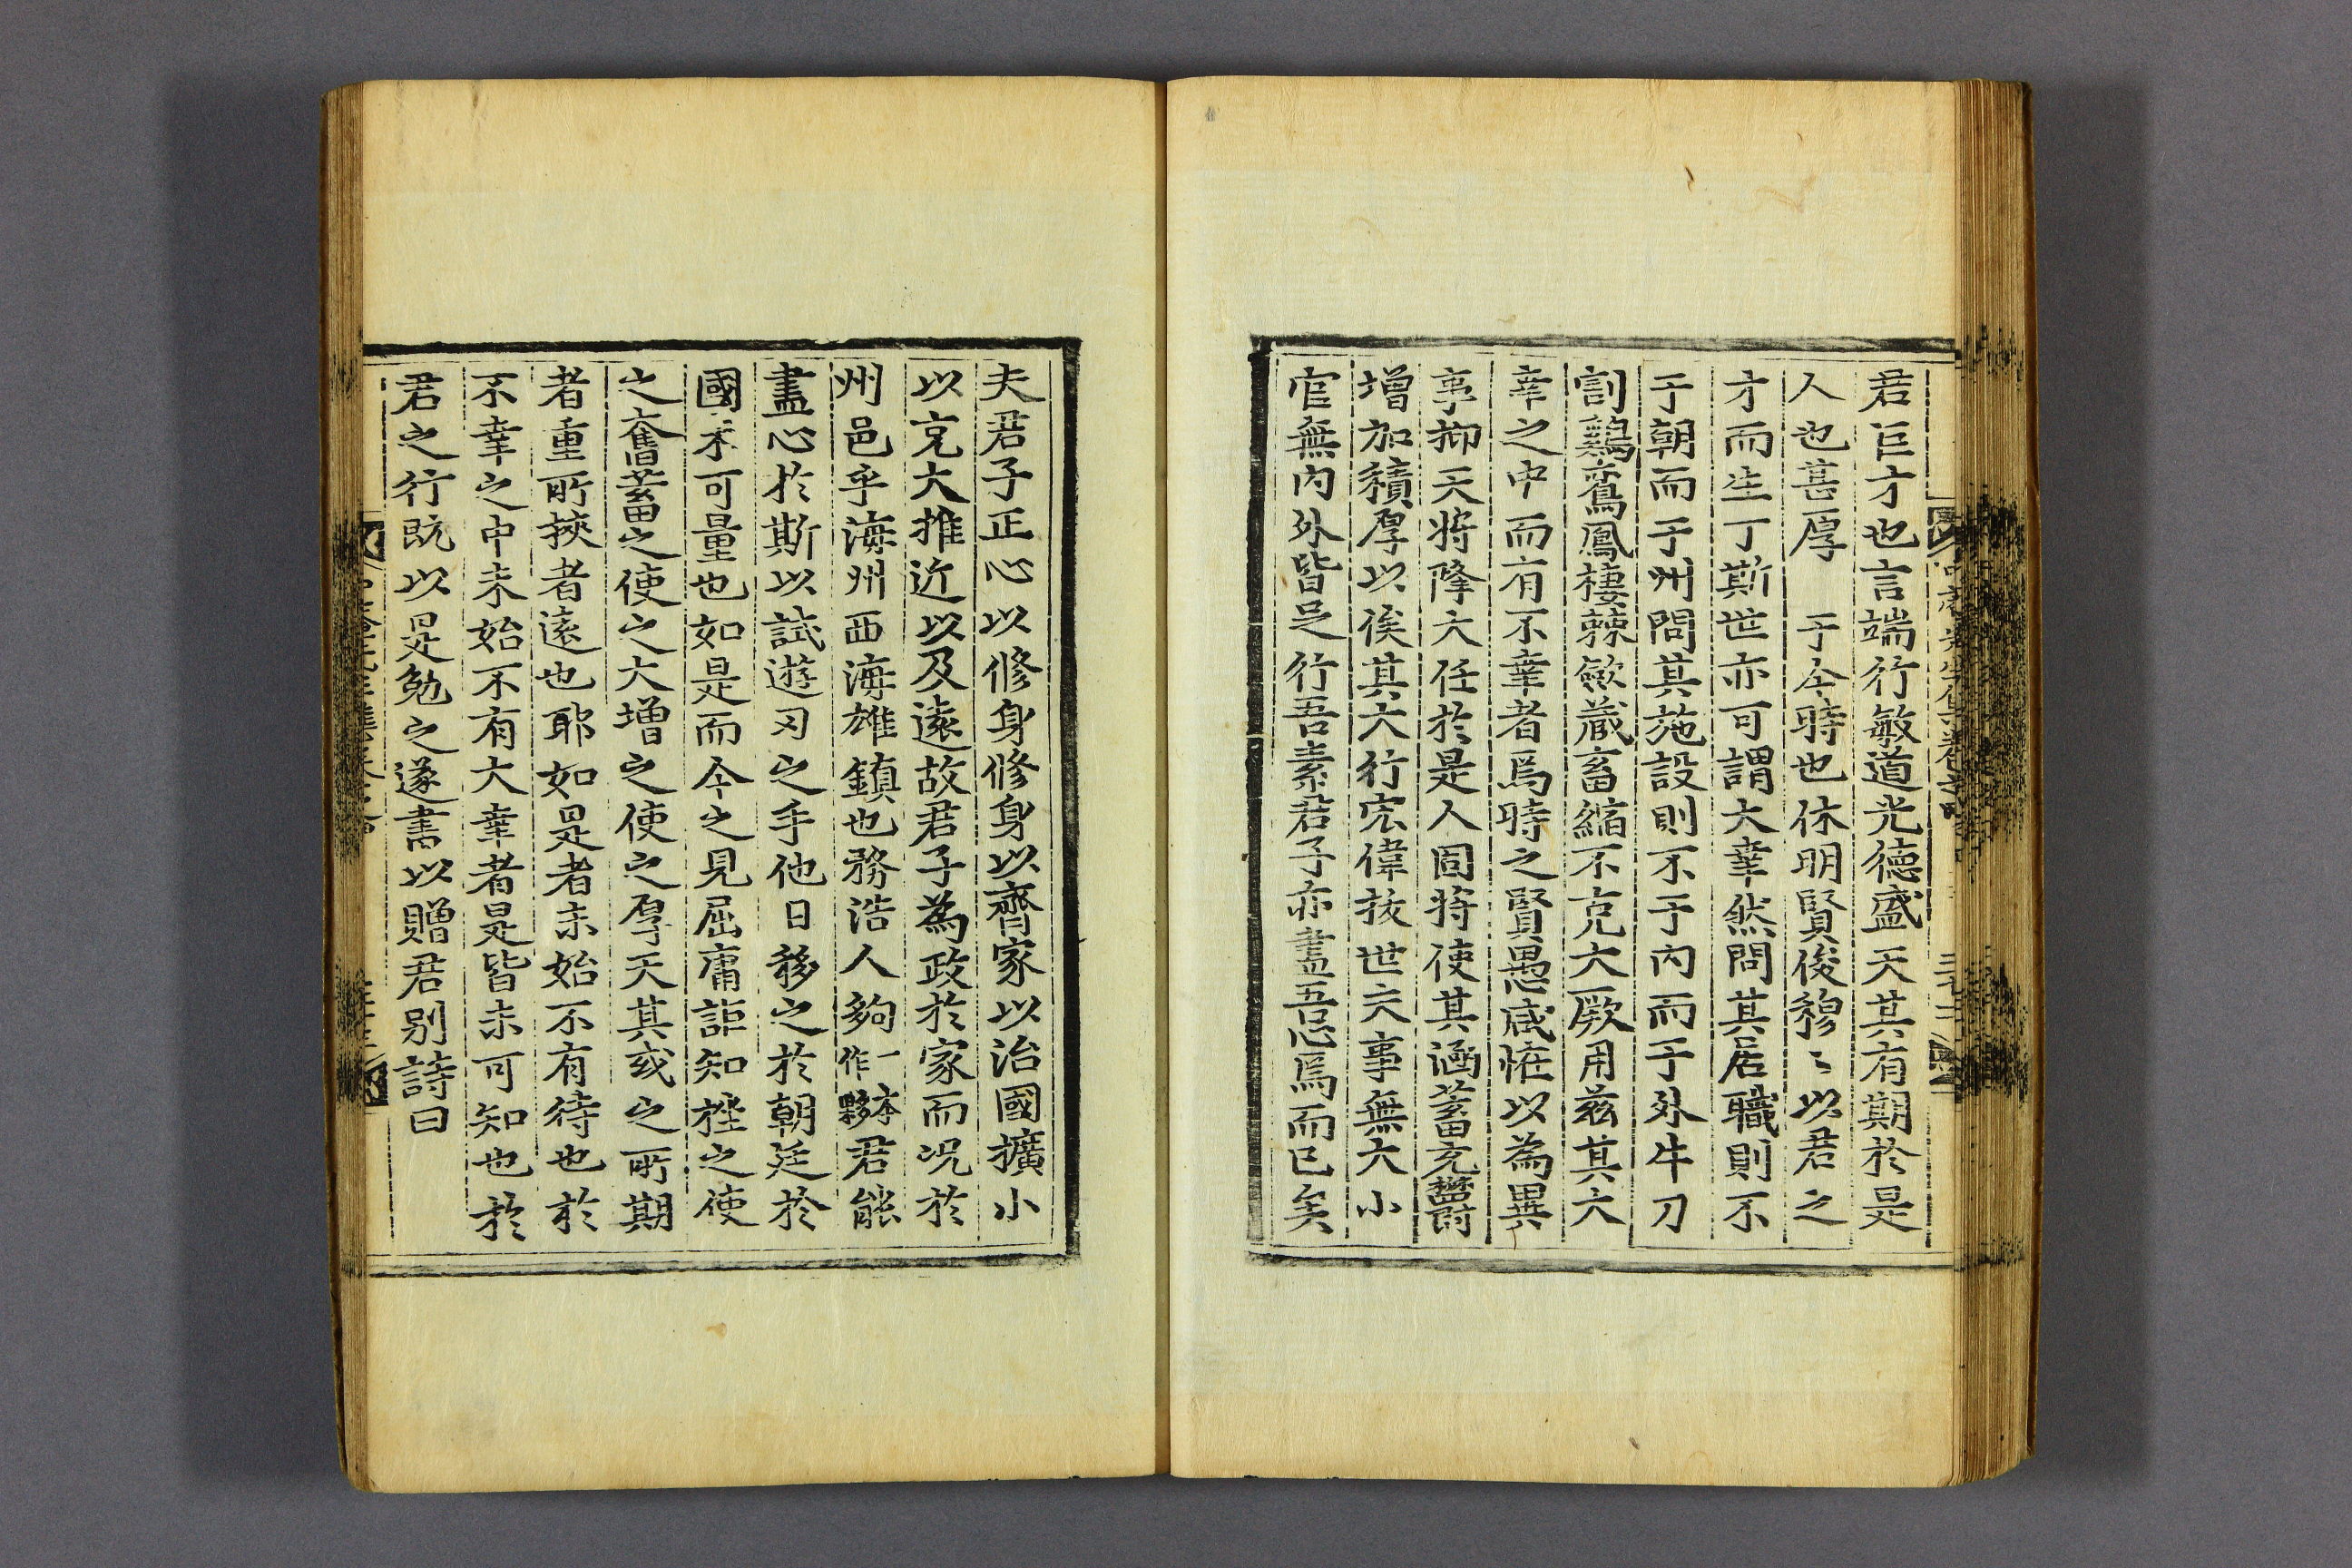 君巨才也言端行敏道光德盛天其有期於是
人也甚厚　于今時也休明賢俊穆〻以君之
才而生丁斯世亦可謂大幸然問其居職則不
于朝而于州問其施設則不于内而于外牛刀
割鷄鸞鳳棲棘歛藏畜縮不克大厥用兹其大
幸之中而有不幸者焉時之賢愚咸恠以為異
事抑天將降大任於是人固將使其涵蓄充欝
增加積厚以俟其大行宏偉拔世之事無大小
官無内外皆足行吾素君子亦盡吾心焉而已矣
夫君子正心以修身修身以齊家以治國擴小
以克大推近以及遠故君子為政於家而况於
州邑乎海州西海雄鎮也務浩人夠一本作夥君能
盡心於斯以試遊刃之手他日移之於朝廷於
國未可量也如是而今之見屈庸詎知挫之使
之奮蓄之使之大增之使之厚天其或之所期
者重所挾者遠也耶如是者未始不有待也於
不幸之中未始不有大幸者是皆未可知也於
君之行既以是勉之遂書以贈君别詩曰